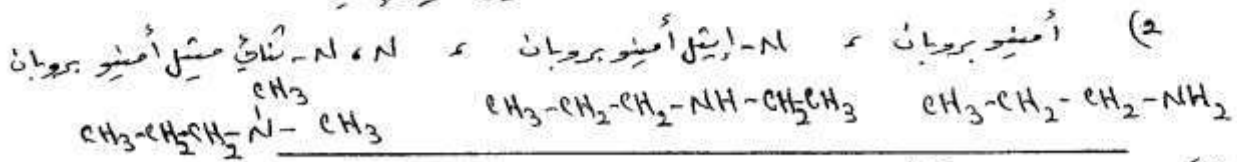 2) أمينو بروبان ، N-إيثيل أمينو بروبان ، N ، N-ثنائي ميثيل أمينو بروبان
CH3-CH2-CH2-NH2    CH3-CH2-CH2-NH-CH2CH3    CH3
CH3-CH2CH2-N-CH3